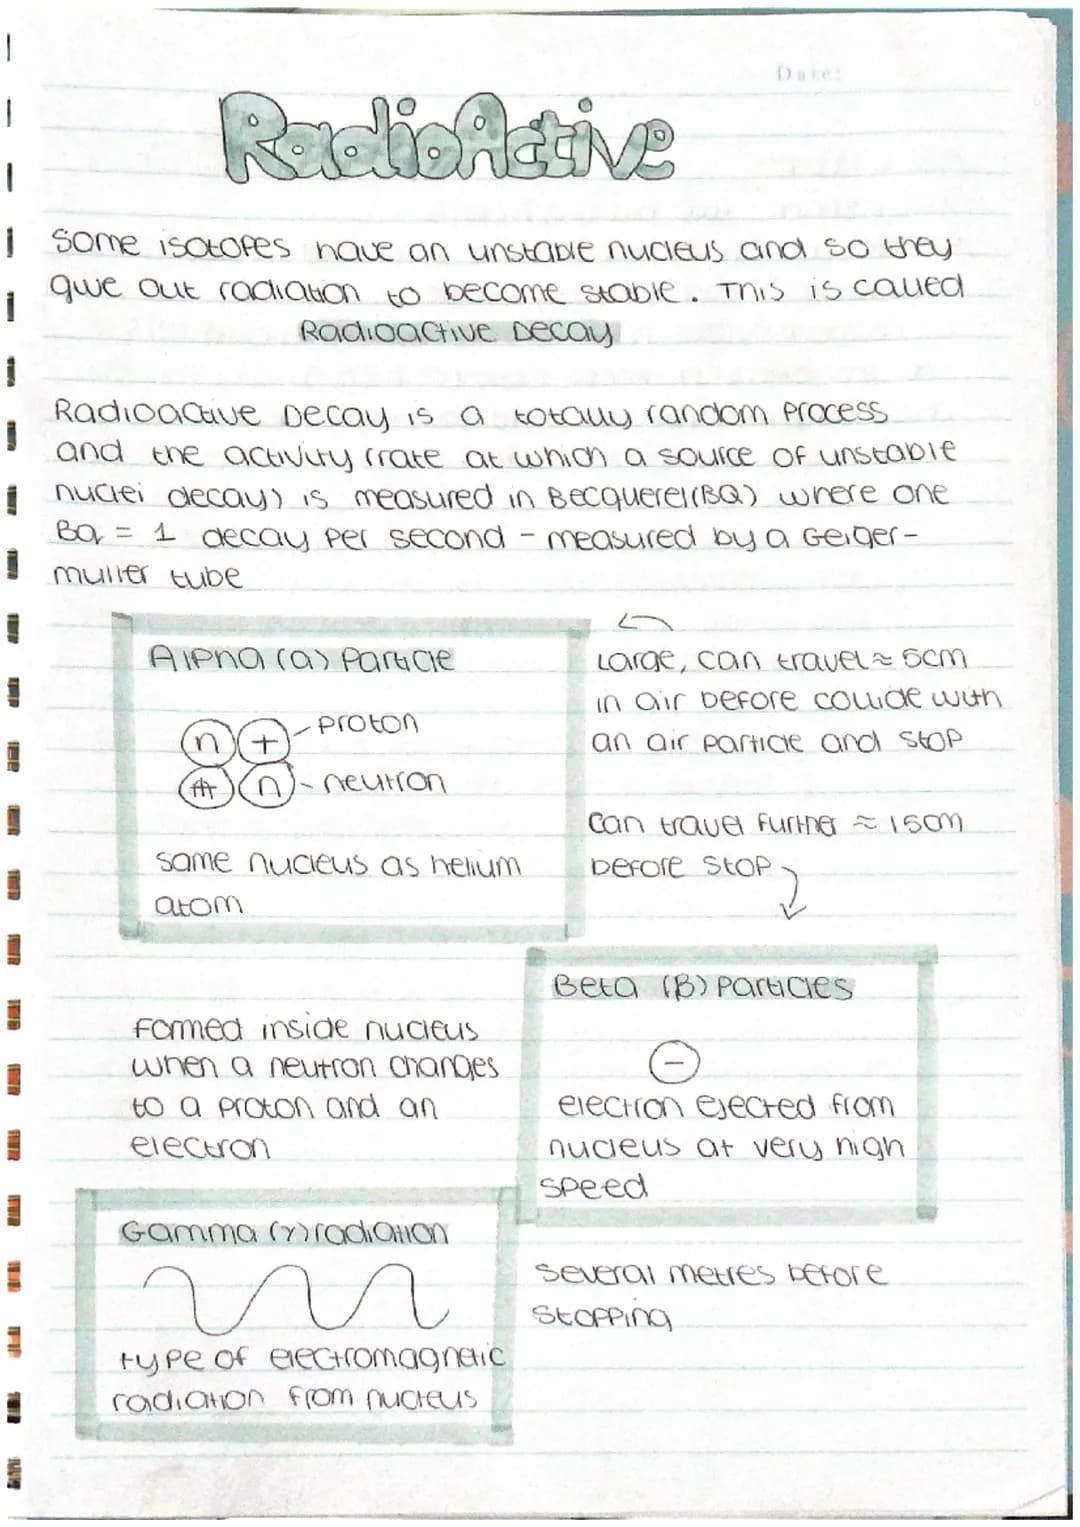 Date:
RadioActive
Some isotopes have an unstable nucleus and so they
give out radiation to become stable. This is called
Radioactive Decay
Radioactive Decay is a totally random process
and the activity (rate at which a source of unstable
nuclei decay) is measured in Becquerel (BQ) where one
Bq = 1 decay per second - measured by a Geiger-
muller tube
Alpha (a) Particle
n + - proton
+ n - neutron
same nucleus as helium
atom
Large, can travel ≈ 5cm
in air before collide with
an air particle and stop
can travel further ≈ 15cm
before stop
Beta (β) Particles
-
electron ejected from
nucleus at very high
speed
formed inside nucleus
when a neutron changes
to a proton and an
electron
Gamma (γ) radiation
type of electromagnetic
radiation from nucleus
several metres before
stopping